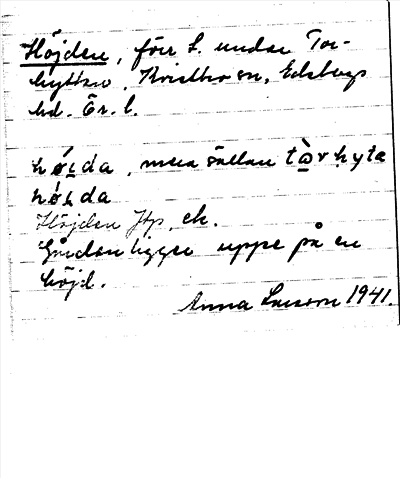 Höjden, förr L. under Tor-
hyttan, Kvistbro sn, Edsbergs
hd. Ör. l.
hǿʟda, mera sällan tὼrhyta
hǿʟda
Höjden Jtp, ek.
Gården ligger uppe på en
höjd.
Anna Larsson 1941.